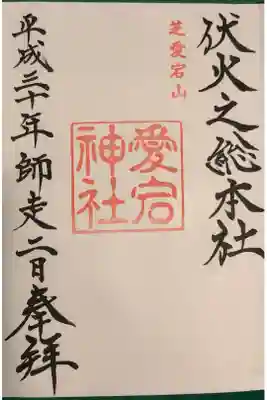 伏火之総本社
芝愛宕山
愛宕神社
平成三十年師走二日奉拜